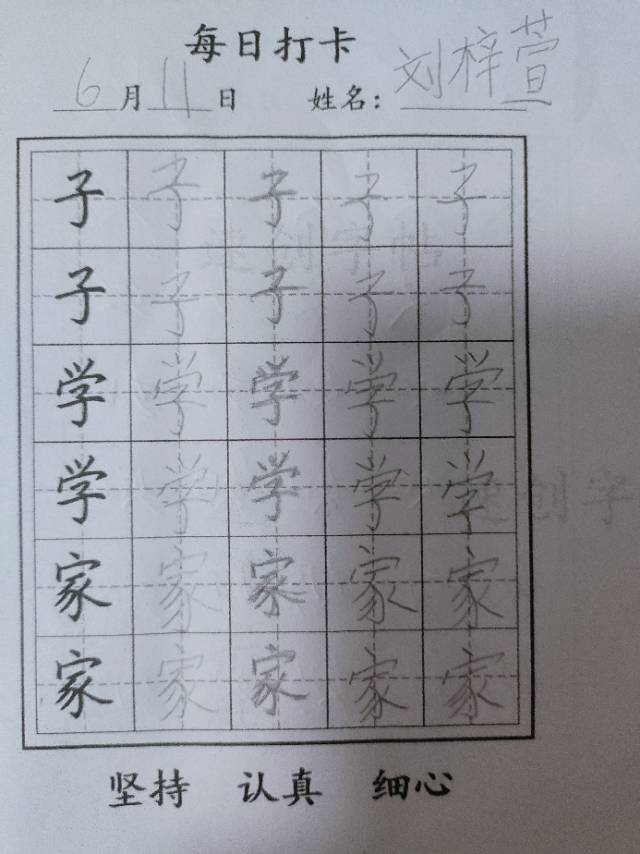 每日打卡
6月11日 姓名：刘梓萱
子 子 子 子 子
子 子 子 子 子
学 学 学 学 学
学 学 学 学 学
家 家 家 家 家
家 家 家 家 家
坚持 认真 细心